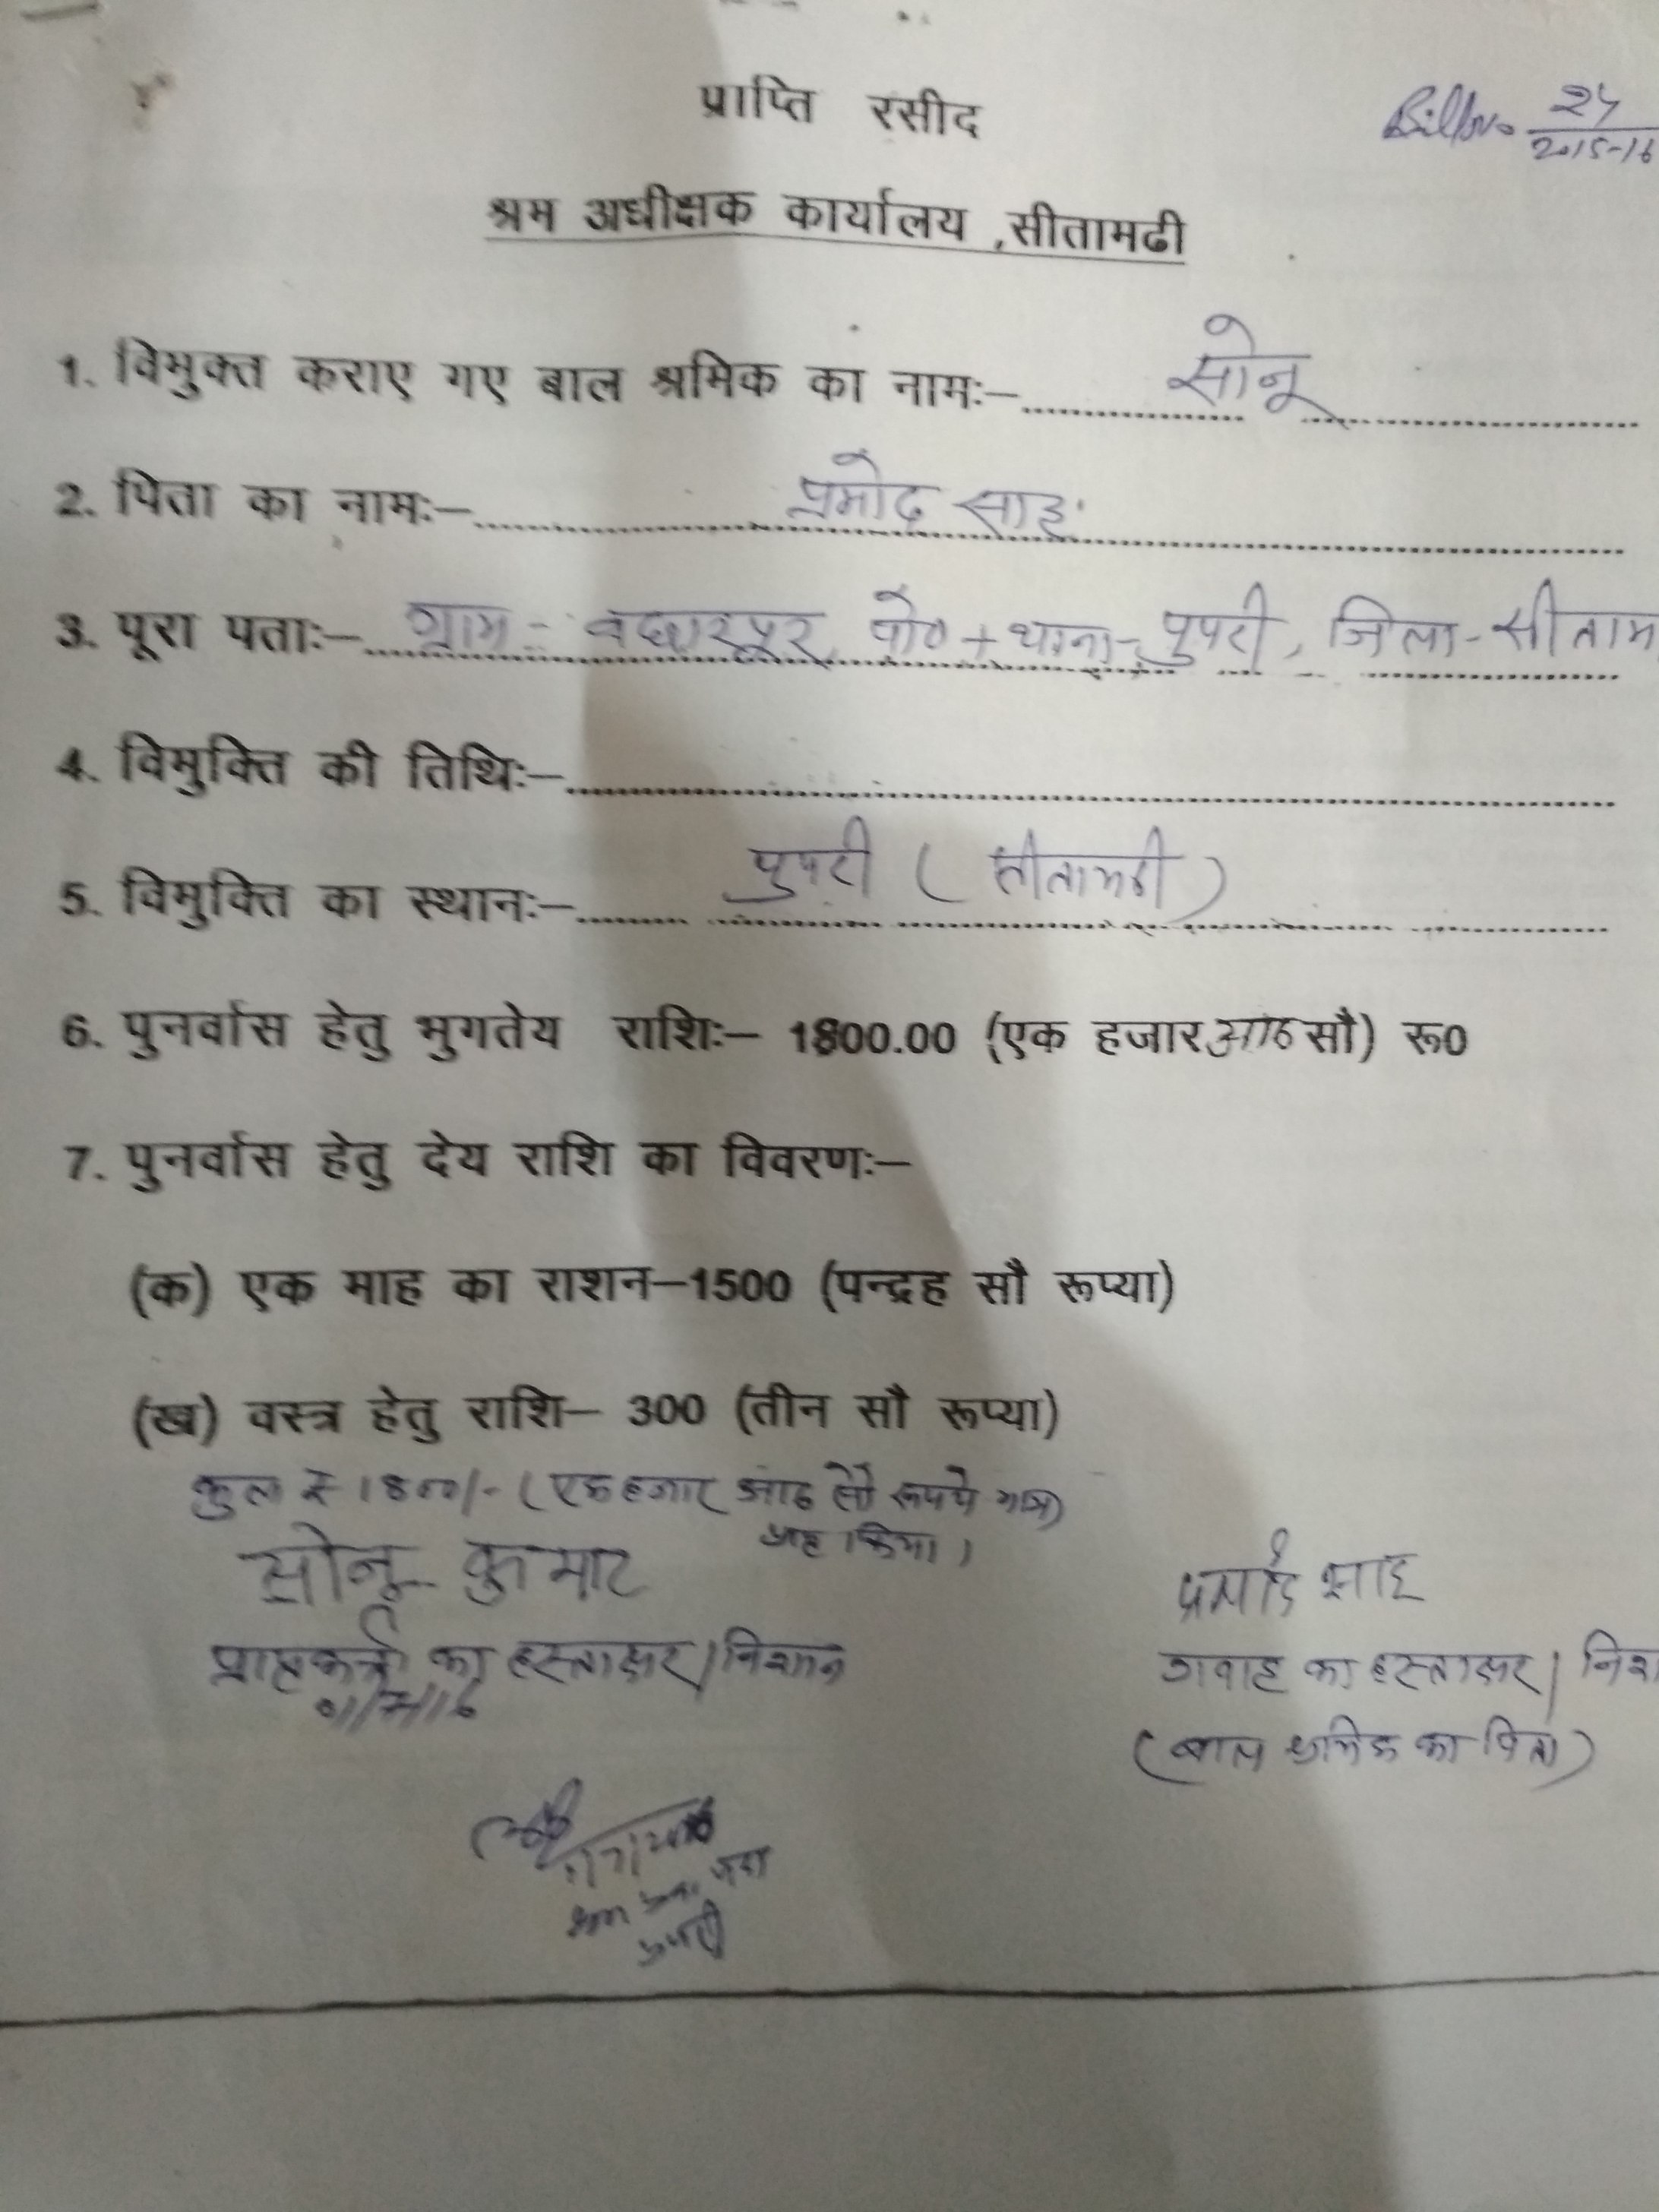 प्राप्ति रसीद
Bill No. 24/2015-16
श्रम अधीक्षक कार्यालय ,सीतामढी
1. विमुक्त कराए गए बाल श्रमिक का नामः– सोनू
2. पिता का नामः– प्रमोद साह
3. पूरा पताः– ग्राम - पो० + थाना - पुपरी, जिला - सीताम
4. विमुक्ति की तिथिः–
5. विमुक्ति का स्थानः– पुपरी ( सीतामढी )
6. पुनर्वास हेतु भुगतेय राशिः– 1800.00 (एक हजार आठ सौ) रू0
7. पुनर्वास हेतु देय राशि का विवरणः–
(क) एक माह का राशन–1500 (पन्द्रह सौ रूप्या)
(ख) वस्त्र हेतु राशि– 300 (तीन सौ रूप्या)
कुल ₹ 1800/- ( एक हजार आठ सौ रूपये मात्र)
प्राप्त किया।
सोनू कुमार
प्रमोद साह
प्राप्तकर्त्ता का हस्ताक्षर / निशान
गवाह का हस्ताक्षर / निशा
(बाल श्रमिक का पिता)
पुपरी